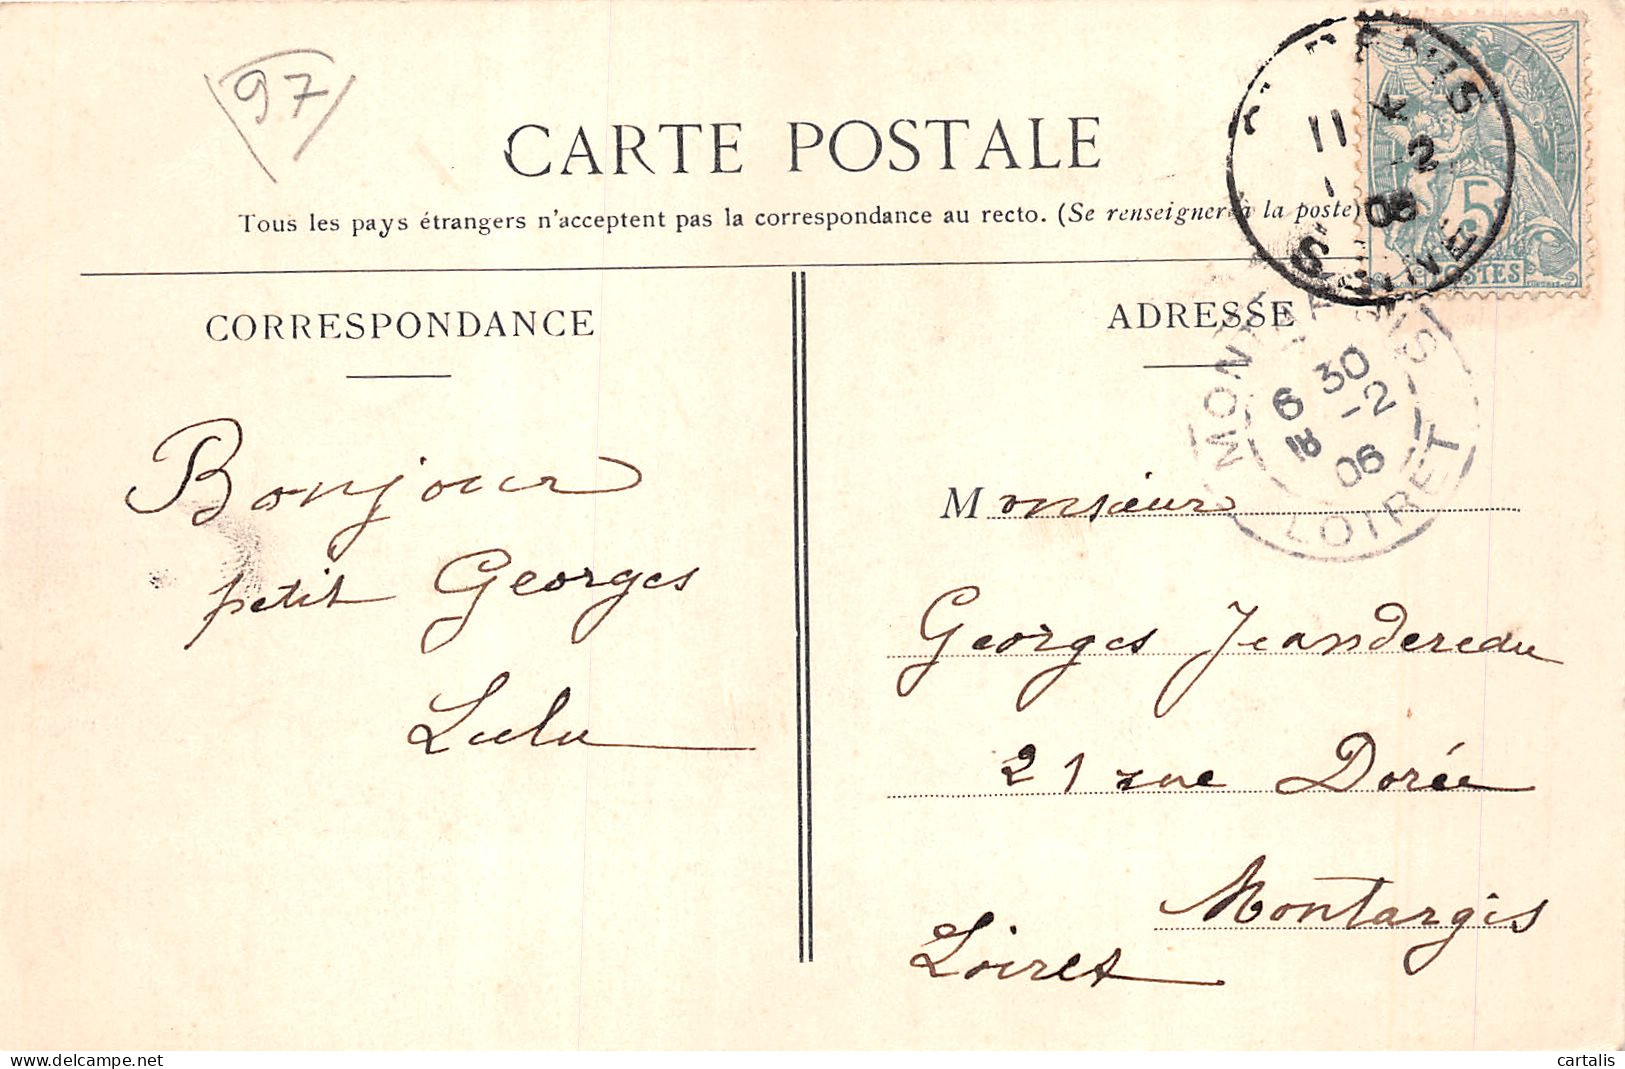 97
CARTE POSTALE
Tous les pays étrangers n'acceptent pas la correspondance au recto. (Se renseigner à la poste)
FRANÇAISE
5
POSTES
DENIS
11
2
06
SEINE
CORRESPONDANCE
ADRESSE
MONTARGIS
6 30
18 -2
06
LOIRET
Bonjour
petit Georges
Lulu
Monsieur
Georges Jeandereau
21 rue Dorée
Montargis
Loiret
cartalis